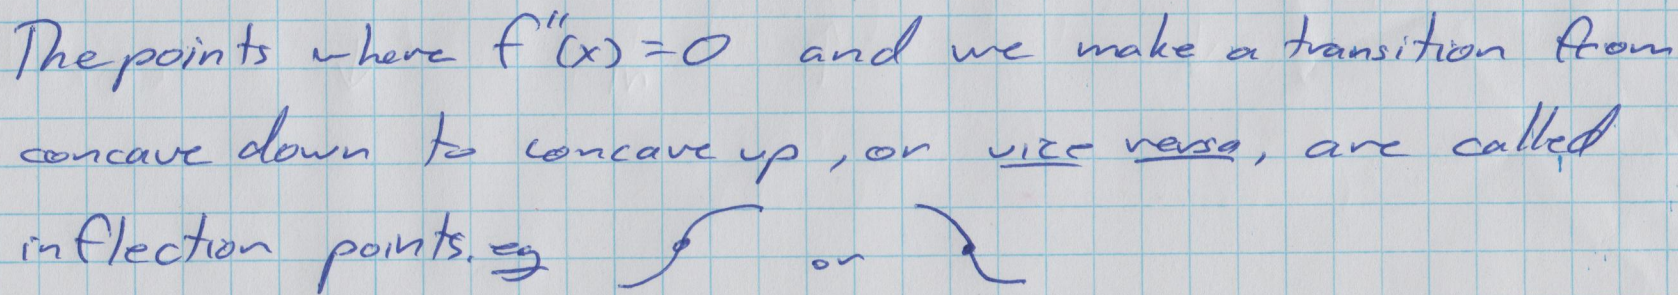 The points where f''(x) = 0 and we make a transition from
concave down to concave up, or vice versa, are called
inflection points. eg or